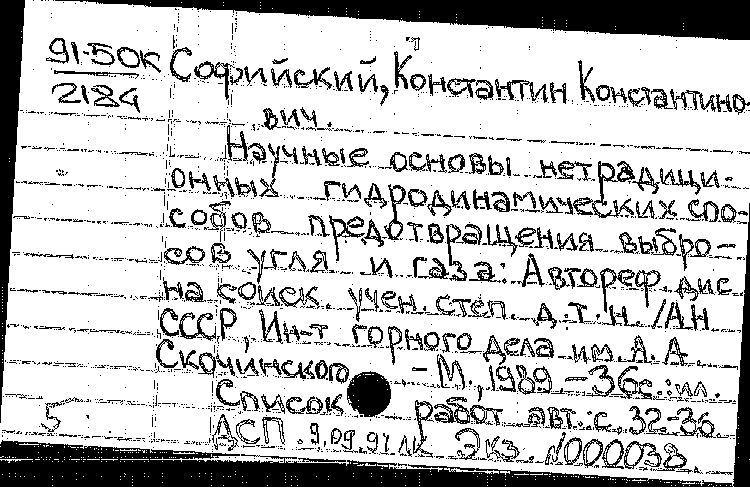 91-50К Софийский, Константин Константино-
2184
вич.
Научные основы нетрадици-
онных гидродинамических спо-
собов предотвращения выбро-
сов угля и газа: Автореф. дис
на соиск. учен. степ. д.т.н. /АН
СССР, Ин-т горного дела им. А.А.
Скочинского. -М., 1989 -36с.:ил.
Список работ авт.:с. 32-36
5 ДСП. 9.09.91 лк Экз. N000038.